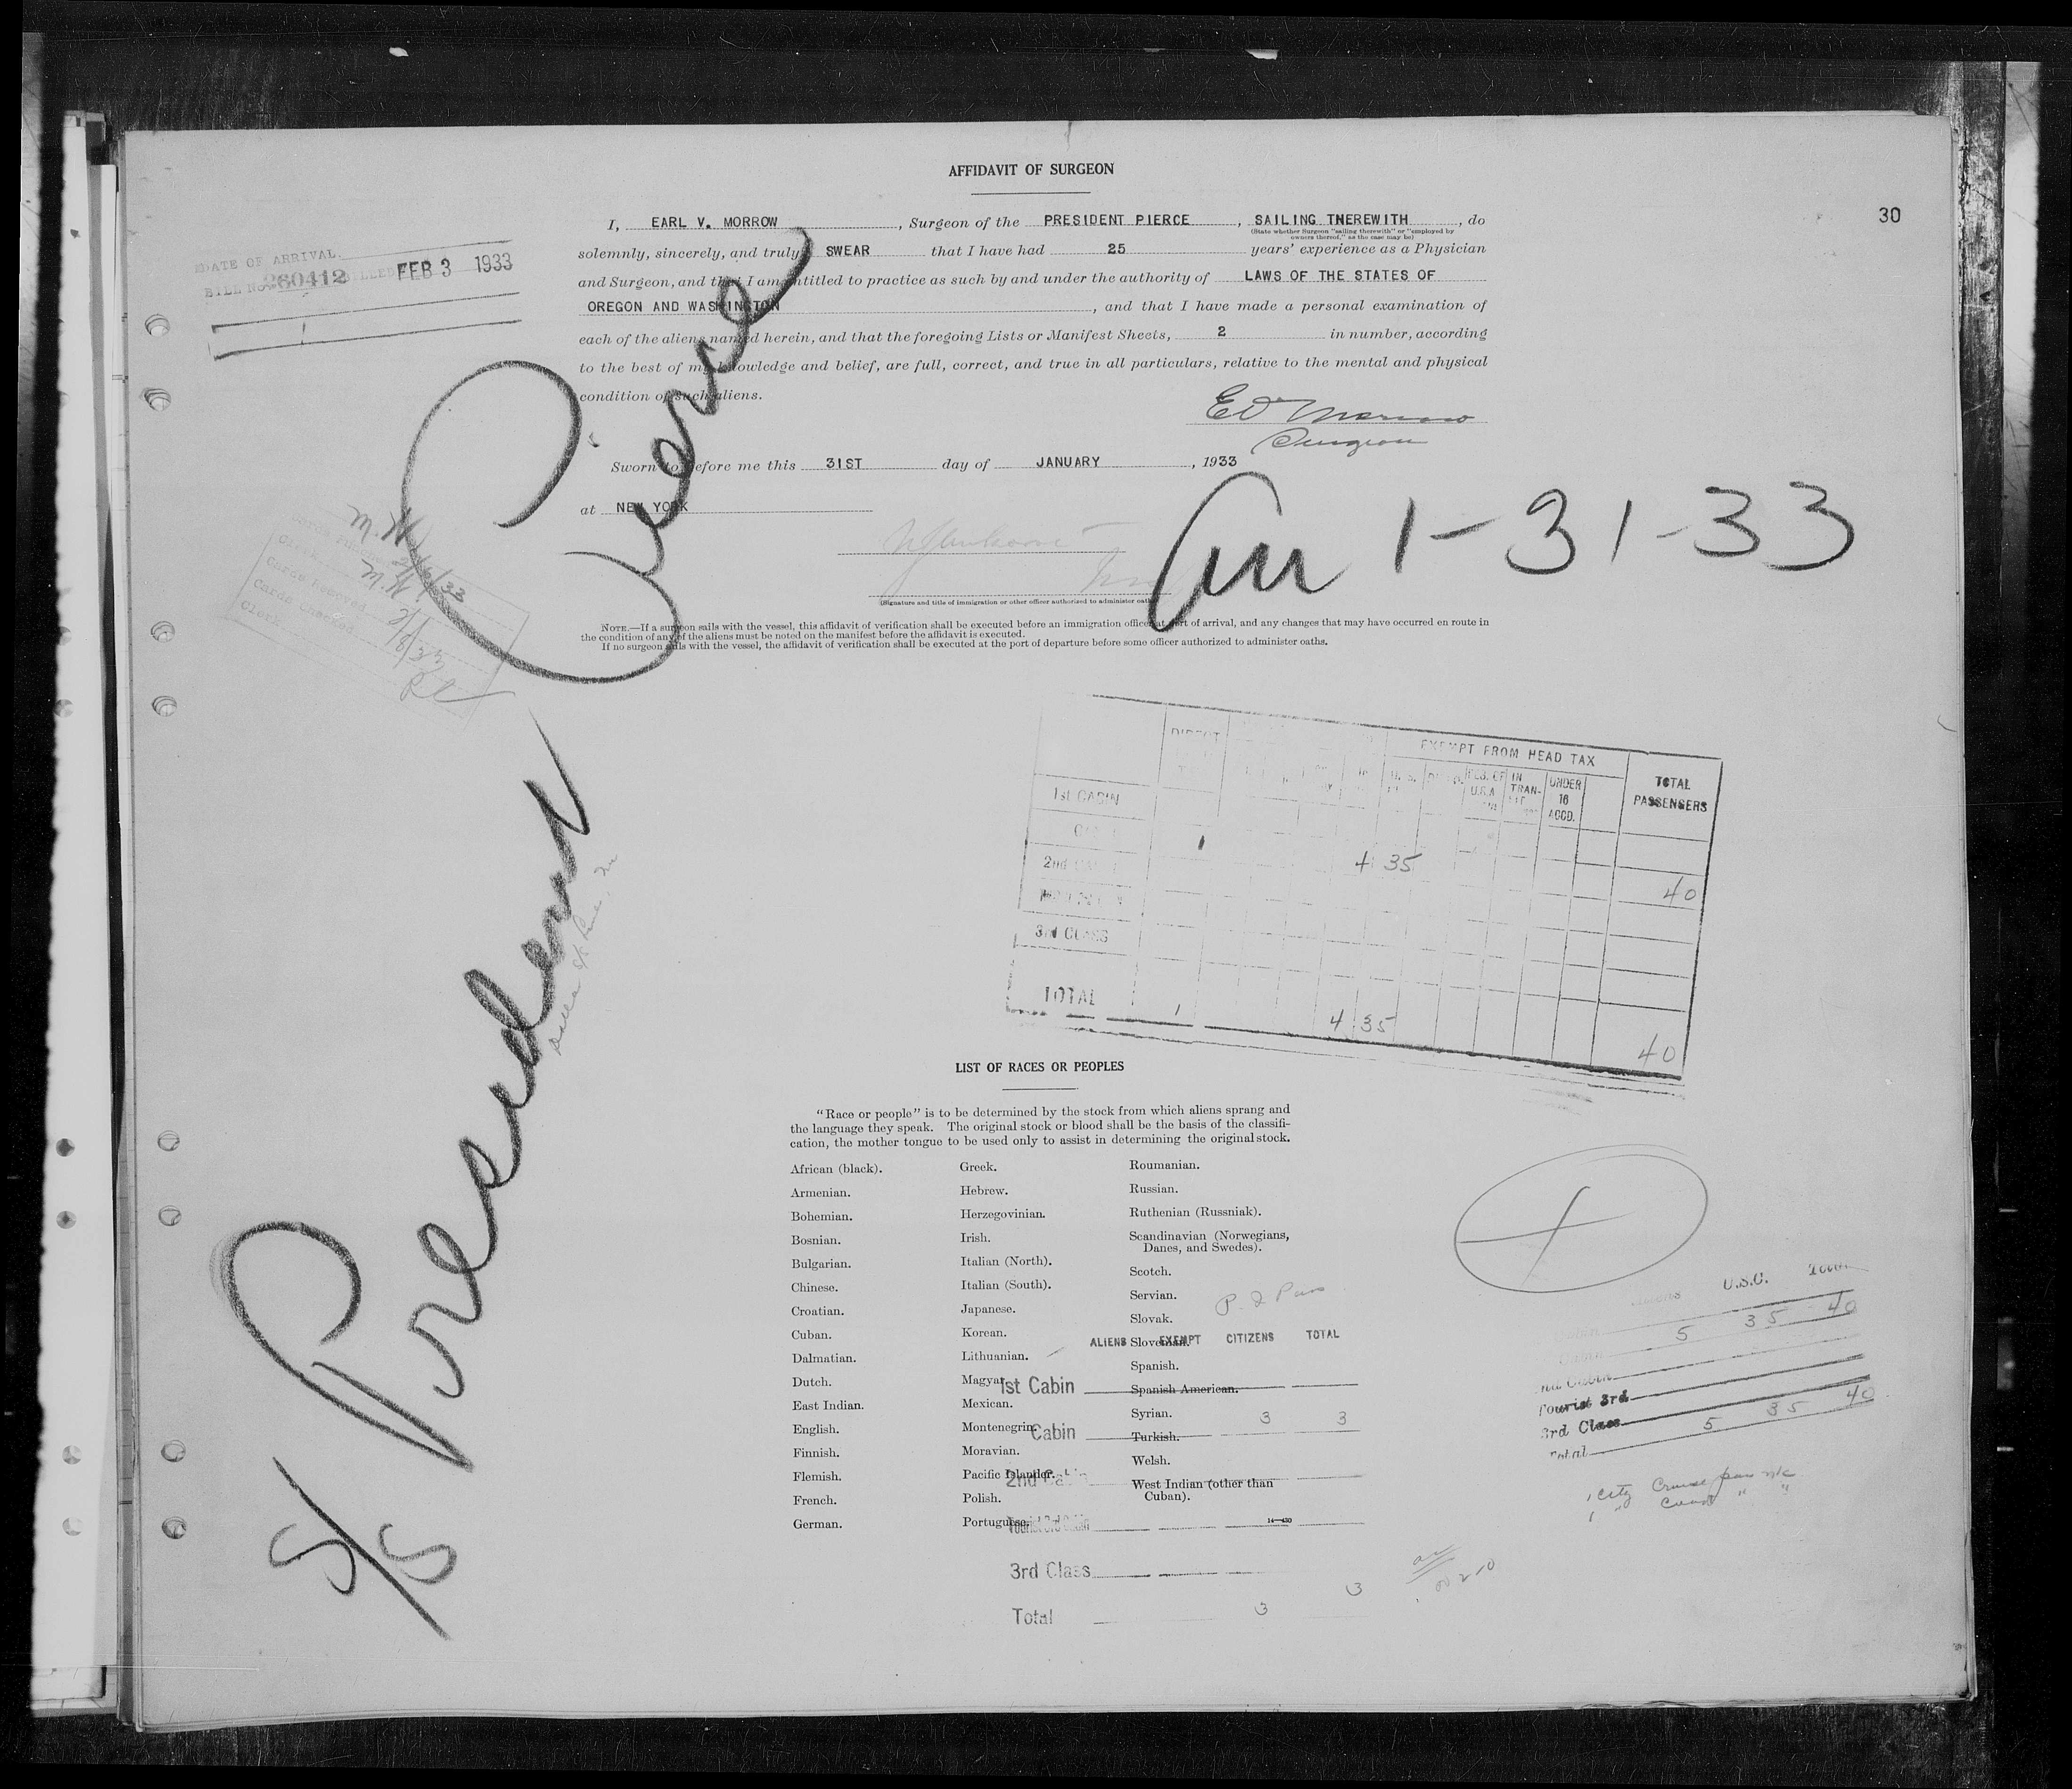 AFFIDAVIT OF SURGEON
30
I, EARL V. MORROW, Surgeon of the PRESIDENT PIERCE, SAILING THEREWITH, do
(State whether Surgeon "sailing therewith" or "employed by
owners thereof," as the case may be)
solemnly, sincerely, and truly SWEAR that I have had 25 years' experience as a Physician
and Surgeon, and that I am entitled to practice as such by and under the authority of LAWS OF THE STATES OF
OREGON AND WASHINGTON, and that I have made a personal examination of
each of the aliens named herein, and that the foregoing Lists or Manifest Sheets, 2 in number, according
to the best of my knowledge and belief, are full, correct, and true in all particulars, relative to the mental and physical
condition of such aliens.
E V Morrow
Surgeon
Sworn to before me this 31ST day of JANUARY, 1933
at NEW YORK
(Signature and title of immigration or other officer authorized to administer oaths)
NOTE.—If a surgeon sails with the vessel, this affidavit of verification shall be executed before an immigration officer at port of arrival, and any changes that may have occurred en route in
the condition of any of the aliens must be noted on the manifest before the affidavit is executed.
If no surgeon sails with the vessel, the affidavit of verification shall be executed at the port of departure before some officer authorized to administer oaths.
DATE OF ARRIVAL
BILL No. 260412 BILLED FEB 3 1933
M.H. 2/6/33
Cards Removed
M.H. 2/6/33
Clerk
S/S President Pierce
Arr 1-31-33
DIRECT
EXEMPT FROM HEAD TAX
TOTAL PASSENGERS
U.S.
RES. OF U.S.A.
IN TRAN-
UNDER 16 ACCD.
1st CABIN
1 4 35 40
2nd
3rd CLASS
TOTAL 1 4 35 40
LIST OF RACES OR PEOPLES
"Race or people" is to be determined by the stock from which aliens sprang and
the language they speak. The original stock or blood shall be the basis of the classifi-
cation, the mother tongue to be used only to assist in determining the original stock.
African (black).
Armenian.
Bohemian.
Bosnian.
Bulgarian.
Chinese.
Croatian.
Cuban.
Dalmatian.
Dutch.
East Indian.
English.
Finnish.
Flemish.
French.
German.
Greek.
Hebrew.
Herzegovinian.
Irish.
Italian (North).
Italian (South).
Japanese.
Korean.
Lithuanian.
Magyar.
Mexican.
Montenegrin.
Moravian.
Pacific Islander.
Polish.
Portuguese.
Roumanian.
Russian.
Ruthenian (Russniak).
Scandinavian (Norwegians,
Danes, and Swedes).
Scotch.
Servian.
Slovak.
Slovenian.
Spanish.
Spanish American.
Syrian.
Turkish.
Welsh.
West Indian (other than
Cuban).
14—430
ALIENS EXEMPT CITIZENS TOTAL
1st Cabin
Cabin 3 3
2nd Cabin
Tourist 3rd Cabin
3rd Class
Total 3 3
U.S.C. Total
5 35 40
2nd Cabin
Tourist 3rd
3rd Class
Total 5 35 40